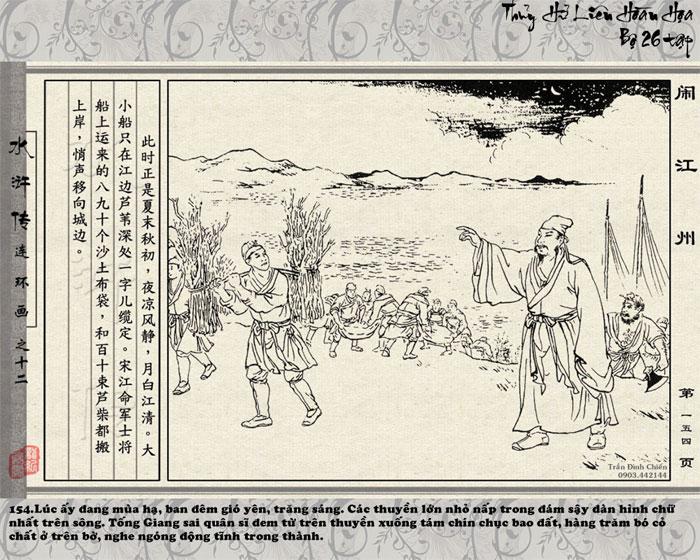 Thủy Hử Liên Hoàn Họa
Bộ 26 tập
闹江州
此时正是夏末秋初，夜凉风静，月白江清。大
小船只在江边芦苇深处一字儿缆定。宋江命军士将
船上运来的八九十个沙土布袋，和百十束芦柴都搬
上岸，悄声移向城边。
水浒传连环画之十二
第一五四页
Trần Đình Chiến
0903.442144
154.Lúc ấy đang mùa hạ, ban đêm gió yên, trăng sáng. Các thuyền lớn nhỏ nấp trong đám sậy dàn hình chữ
nhất trên sông. Tống Giang sai quân sĩ đem từ trên thuyền xuống tám chín chục bao đất, hàng trăm bó cỏ
chất ở trên bờ, nghe ngóng động tĩnh trong thành.